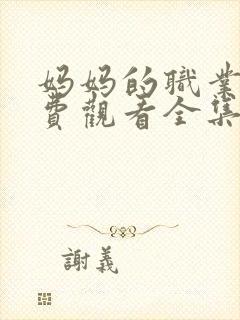 妈妈的職業
費觀看全集
謝義